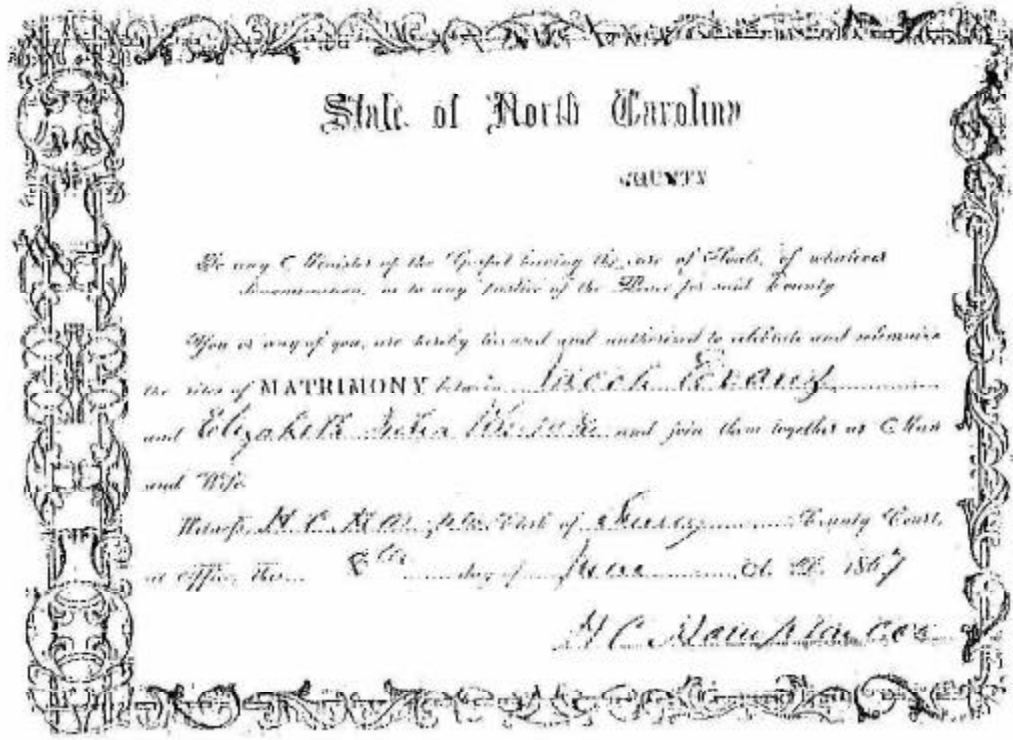 State of North Carolina
COUNTY
To any Minister of the Gospel having the care of Souls, of whatever
denomination, or to any Justice of the Peace for said County
You or any of you, are hereby licensed and authorized to celebrate and solemnize
the rites of MATRIMONY between Jacob Evans
and Elizabeth and join them together as Man
and Wife
Witness, H C Clerk of Surry County Court,
at Office, this 8th day of A. D. 1867
H C